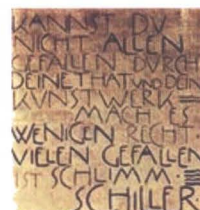 KANNST DU
NICHT ALLEN
GEFALLEN DURCH
DEINE THAT UND DEIN
KUNSTWERK
MACH ES
WENIGEN RECHT.
VIELEN GEFALLEN
IST SCHLIMM.
SCHILLER.